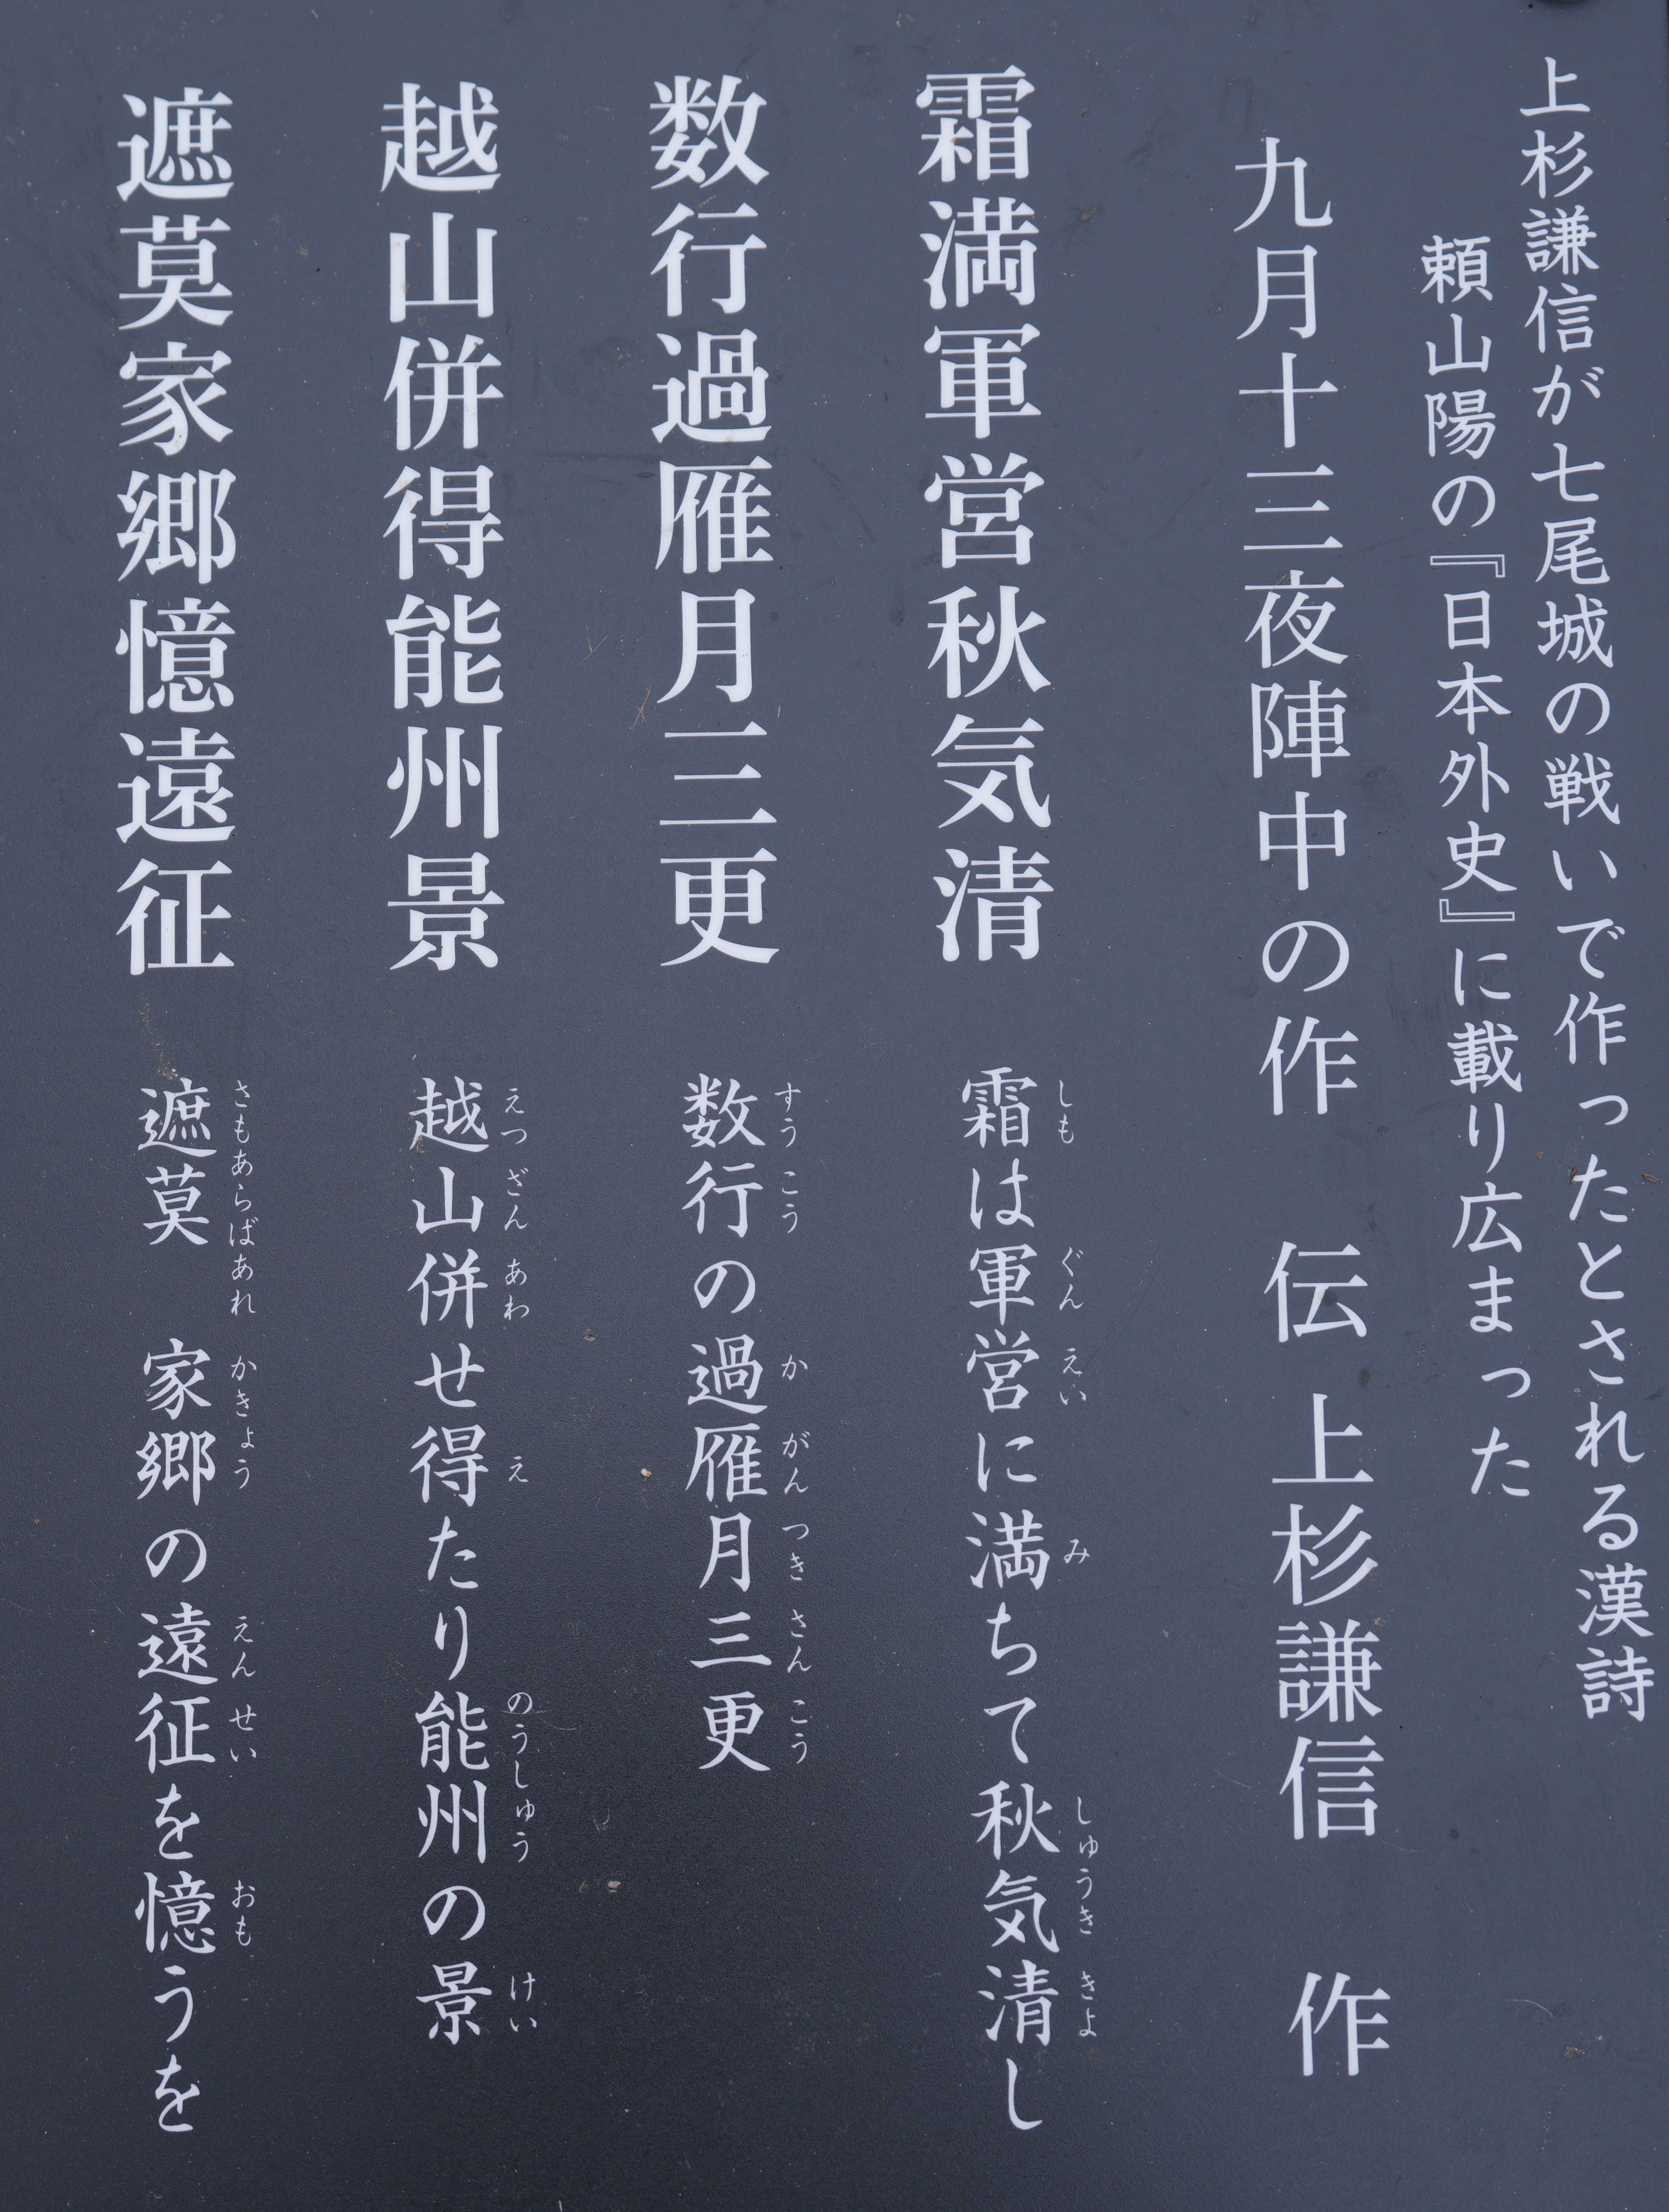 上杉謙信が七尾城の戦いで作ったとされる漢詩
頼山陽の『日本外史』に載り広まった
九月十三夜陣中の作　伝 上杉謙信　作
霜満軍営秋気清
霜は軍営に満ちて秋気清し
しも ぐん えい み しゅうき きよ
数行過雁月三更
数行の過雁月三更
すう こう か がん つき さん こう
越山併得能州景
越山併せ得たり能州の景
えつ ざん あわ え のうしゅう けい
遮莫家郷憶遠征
遮莫　家郷の遠征を憶うを
さもあらばあれ かきょう えん せい おも